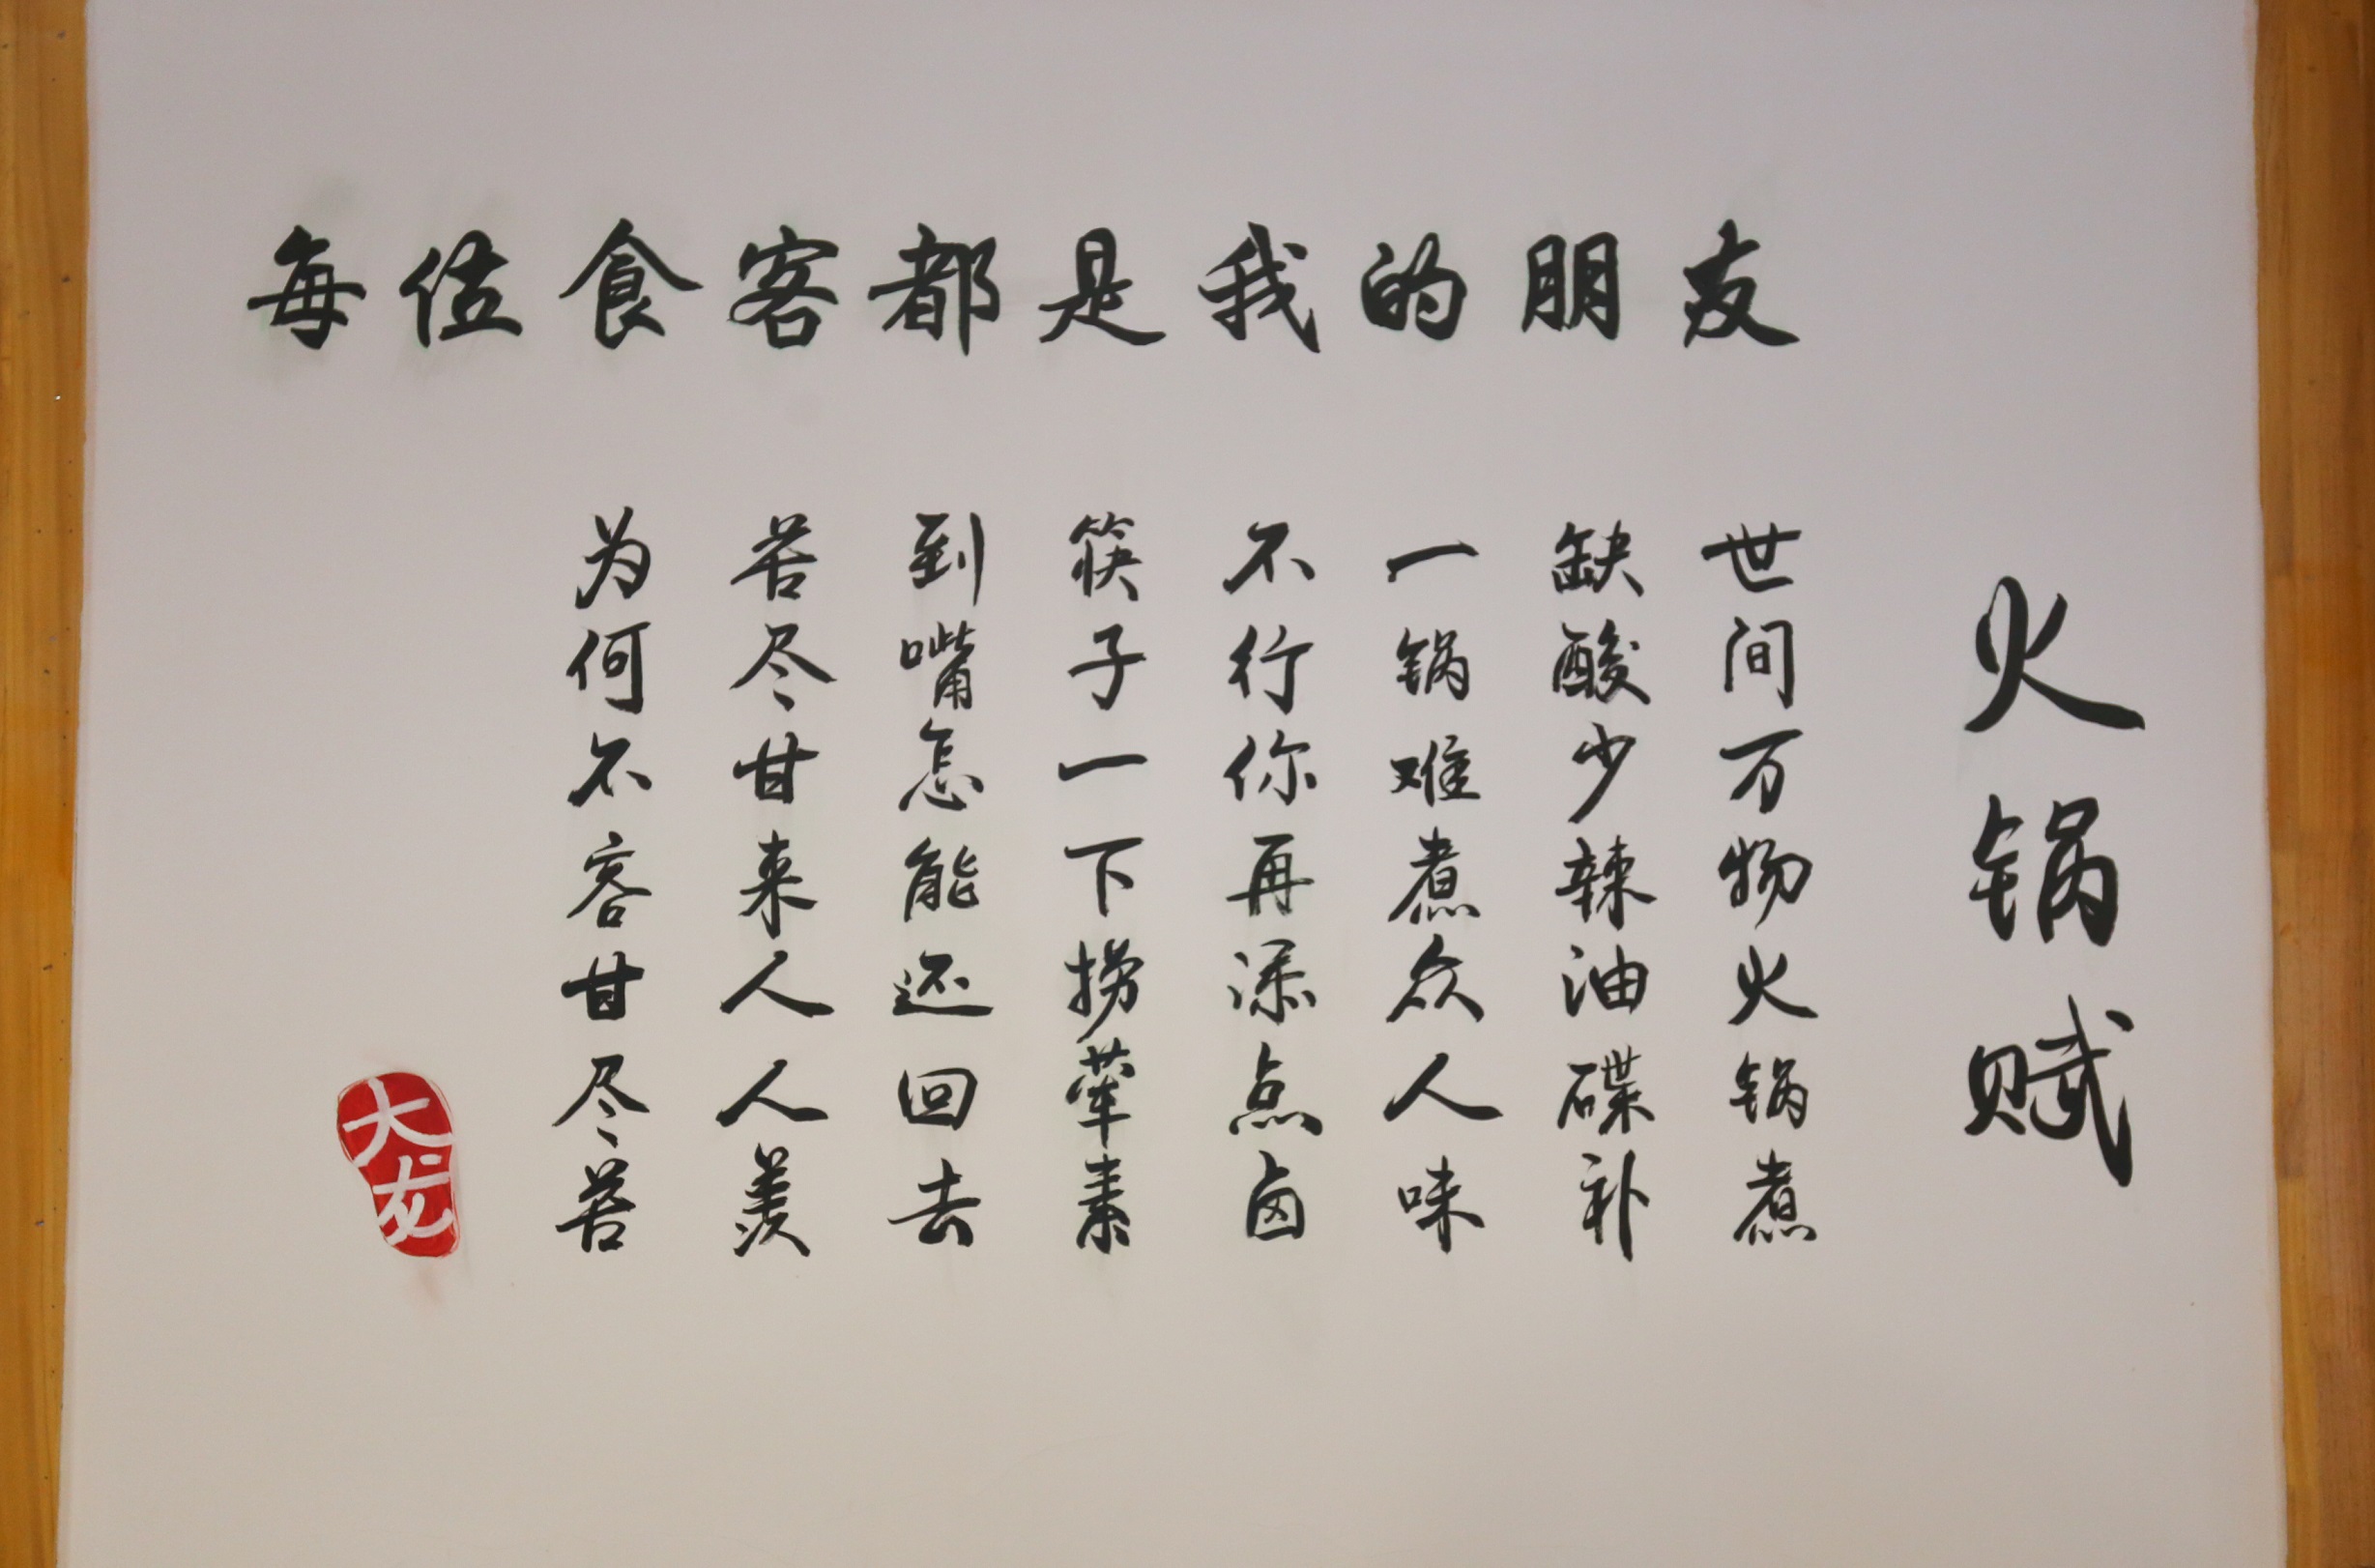 每位食客都是我的朋友
火锅赋
世间万物火锅煮
缺酸少辣油碟补
一锅难煮众人味
不行你再添点卤
筷子一下捞荤素
到嘴怎能还回去
苦尽甘来人人羡
为何不容甘尽苦
大龙